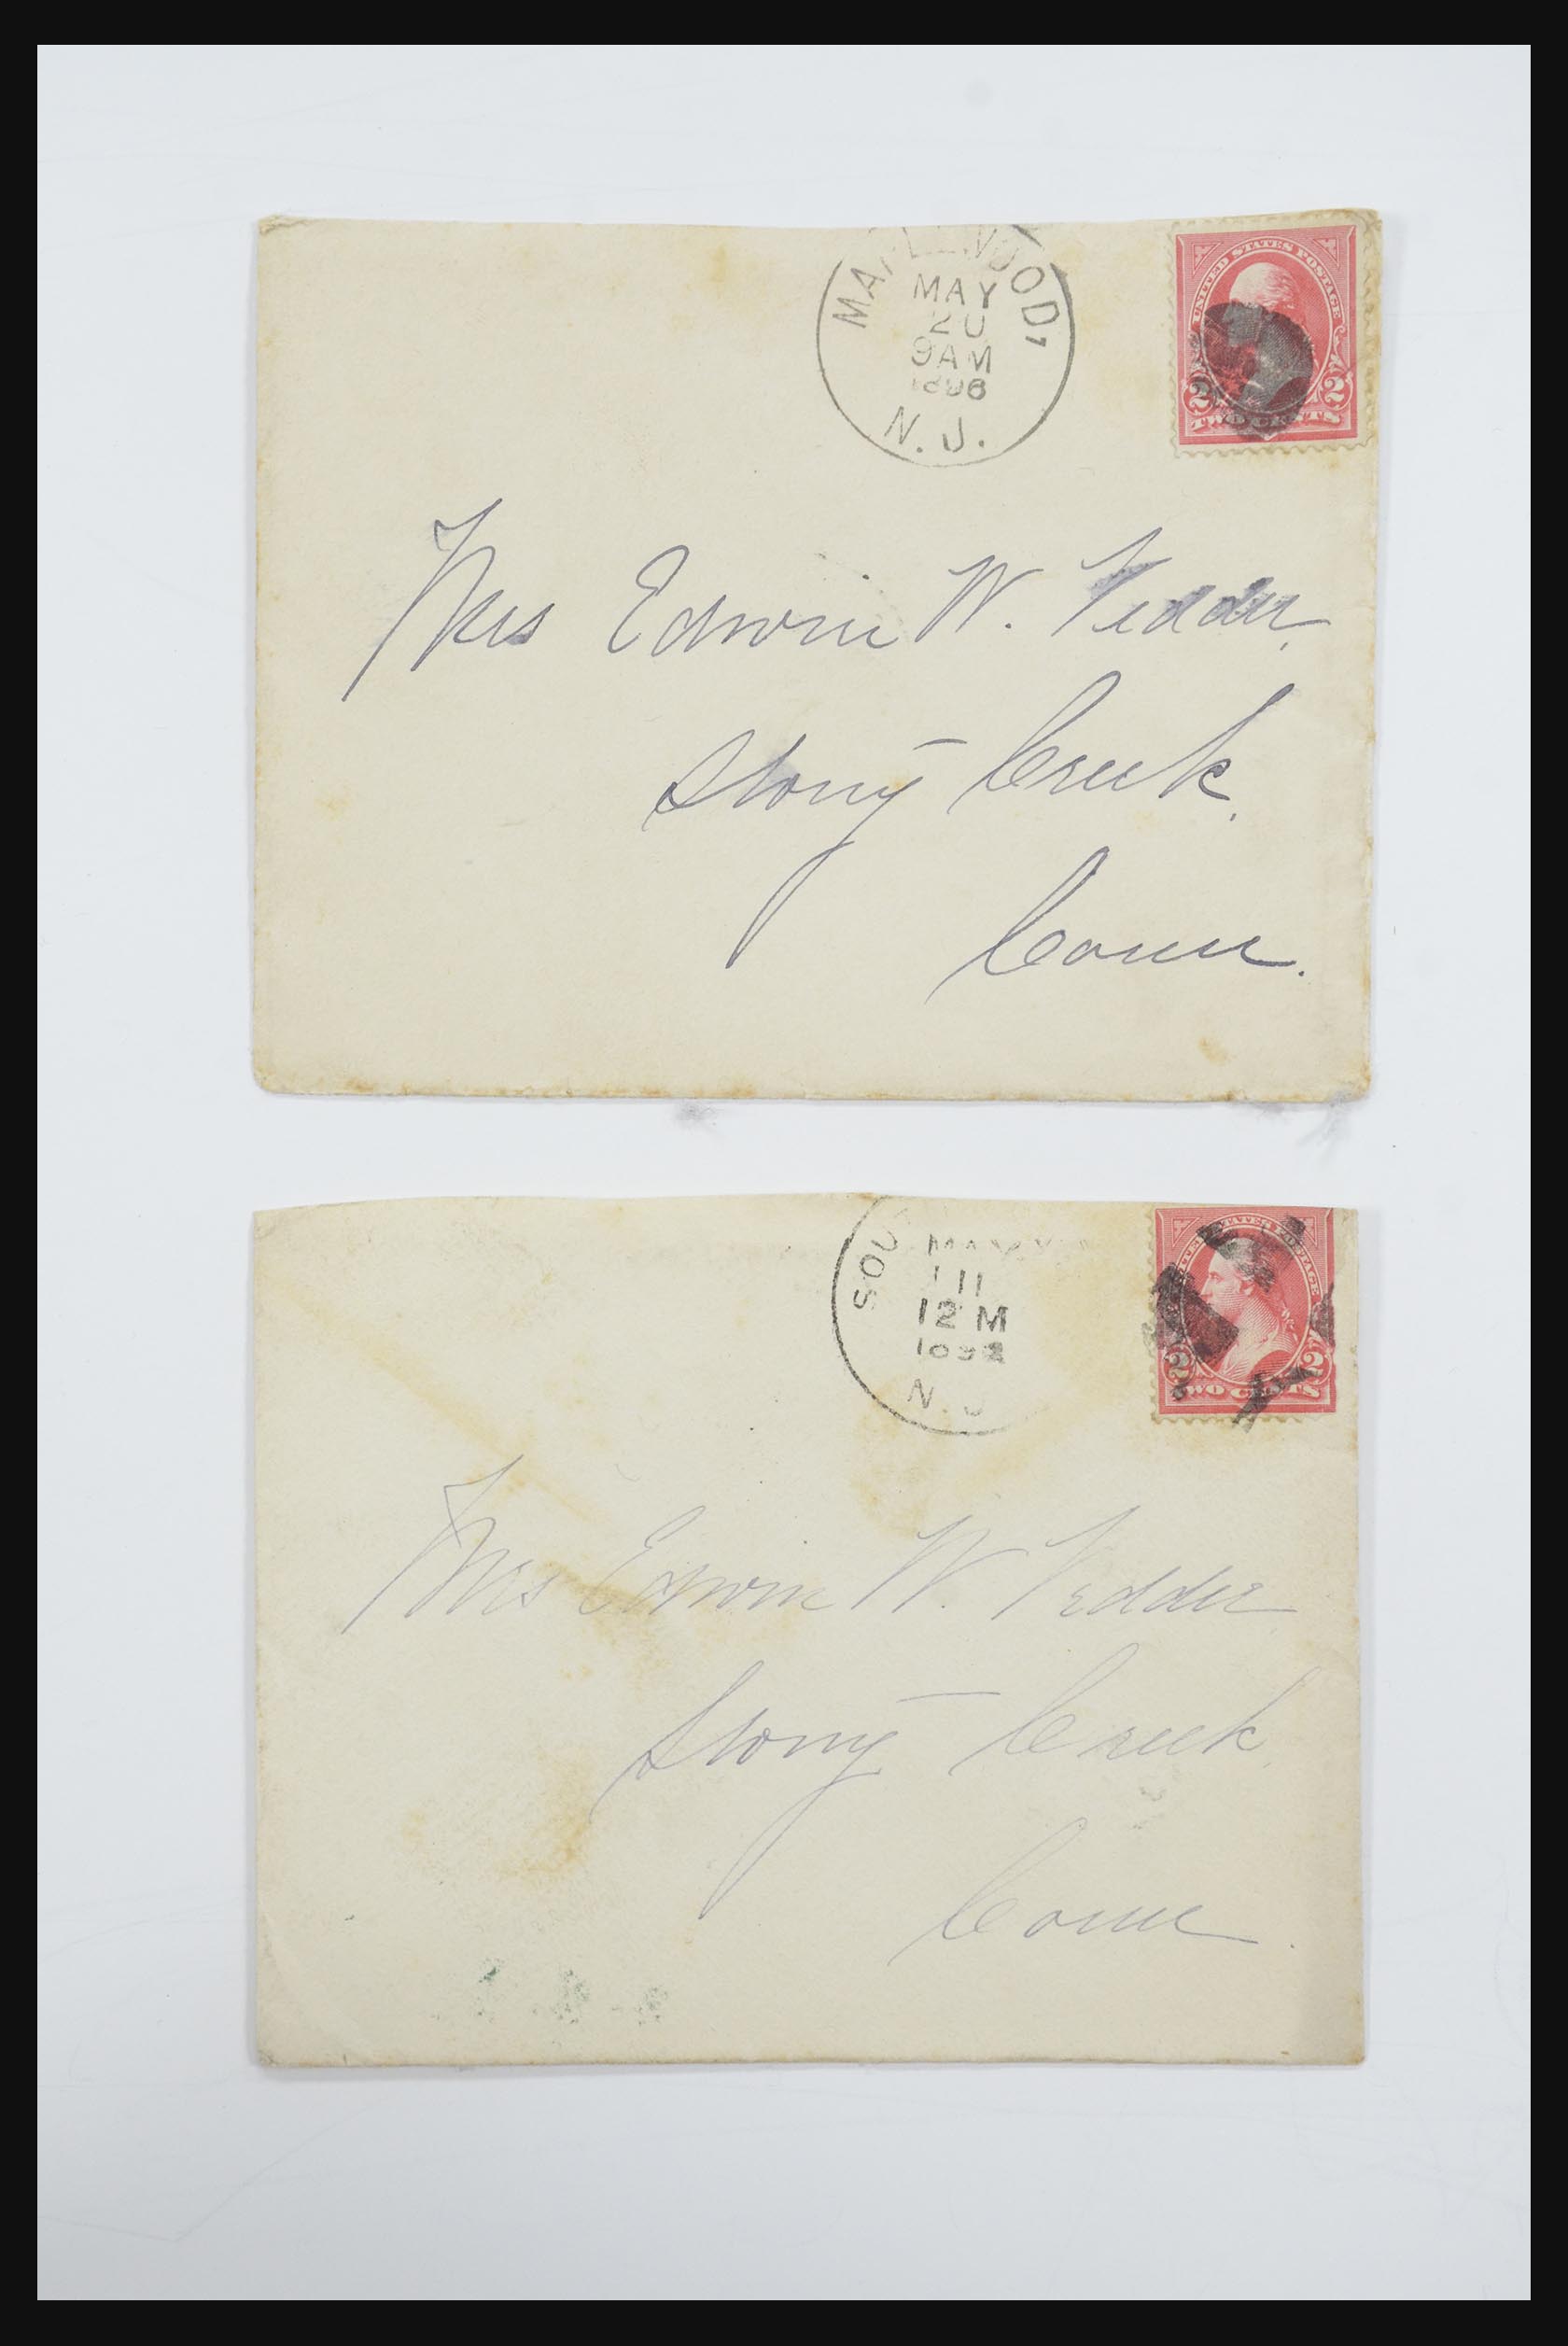 MAPLEWOOD,
MAY
20
9AM
1896
N. J.
UNITED STATES POSTAGE
2 2
TWO CENTS
Mrs Edwin W. Vedder,
Stony Creek,
Conn.
MAY
11
12 M
N. J
UNITED STATES POSTAGE
2 2
TWO CENTS
Mrs Edwin W. Vedder
Stony Creek,
Conn.